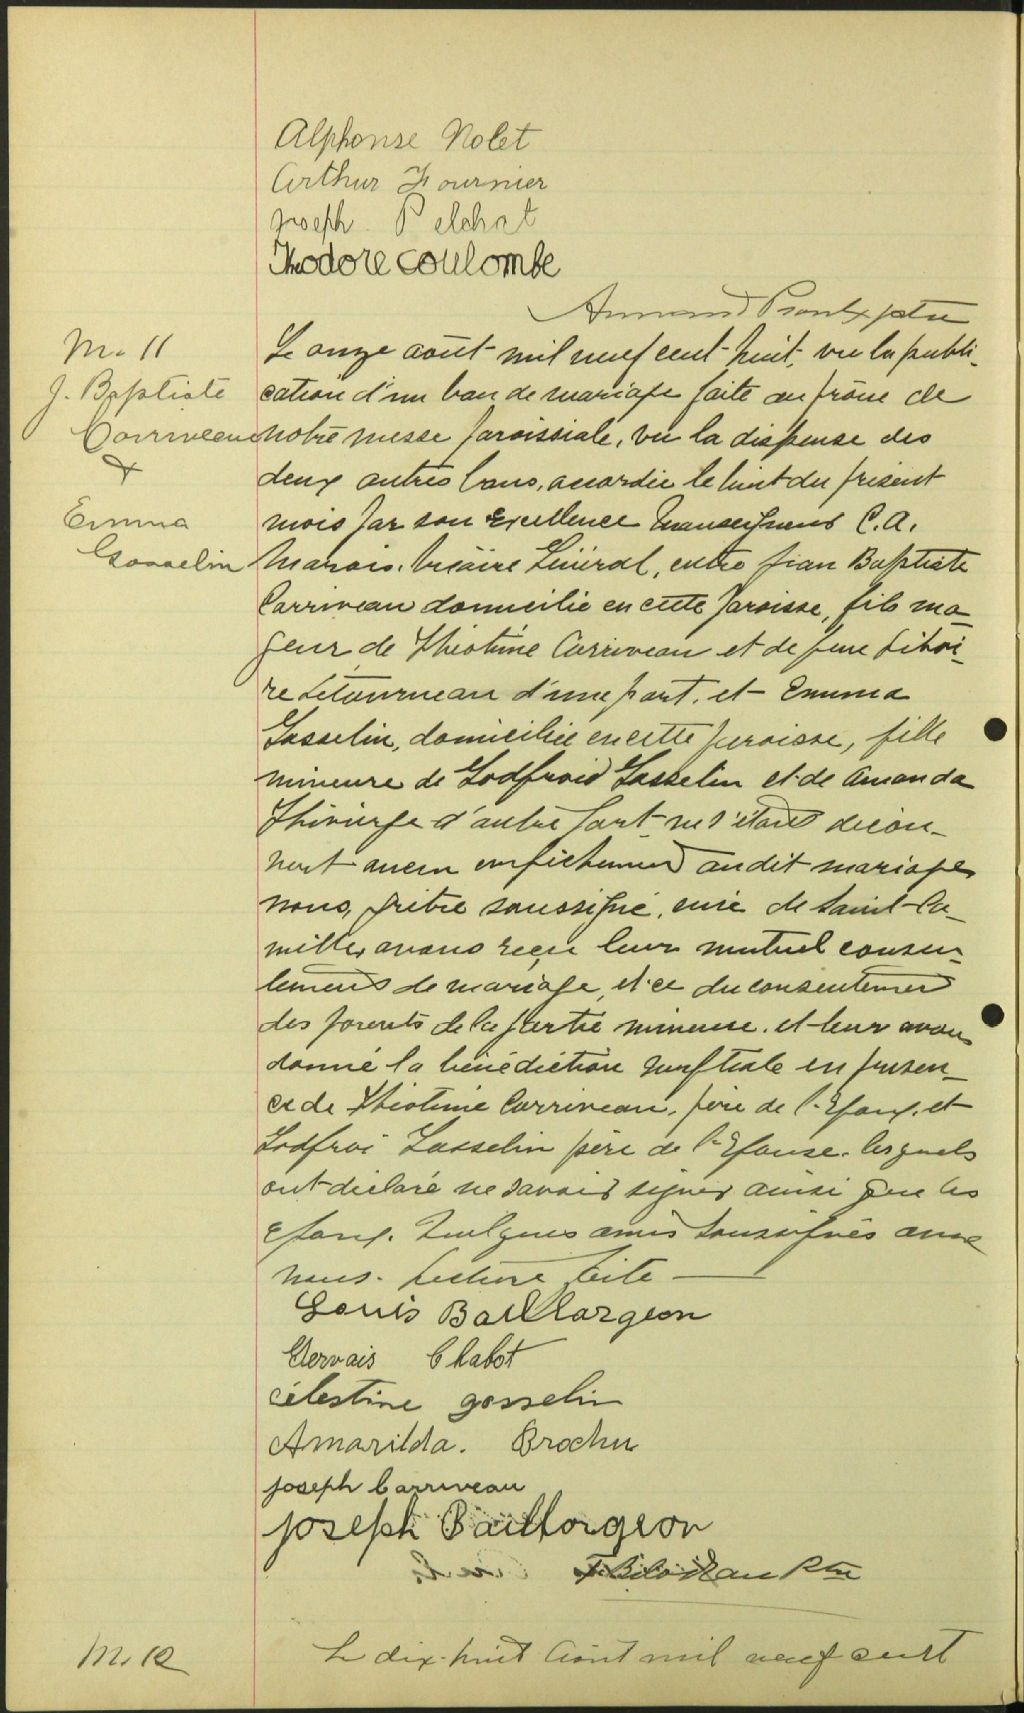 Alphonse Nolet
Arthur Fournier
Joseph Pelchat
Theodore Coulombe
Armand Proulx ptre
M. 11
J. Baptiste
Corriveau
&
Emma
Gosselin
Le onze août mil neuf cent huit, vu la publi-
cation d'un ban de mariage faite au prône de
notre messe paroissiale, vu la dispense des
deux autres bans, accordée le huit du présent
mois par son Excellence Monseigneur C. A.
Marois, Vicaire Général, entre Jean Baptiste
Corriveau domicilié en cette paroisse, fils ma-
jeur de Théotime Corriveau et de feue
Letourneau d'une part, et Emma
Gosselin, domiciliée en cette paroisse, fille
mineure de Godfroid Gosselin et de Amanda
Thivierge d'autre part ne s'étant décou-
vert aucun empêchement au dit mariage
nous, prêtre soussigné, curé de Saint-Ca-
mille, avons reçu leur mutuel consen-
tement de mariage, et ce du consentement
des parents de la partie mineure, et leur avons
donné la bénédiction nuptiale en présen-
ce de Théotime Corriveau, père de l'Epoux, et
Godfroi Gosselin père de l'Epouse, lesquels
ont déclaré ne savoir signer ainsi que les
Epoux. Quelques amis soussignés avec
nous. Lecture faite
Louis Baillargeon
Gervais Chabot
Célestine gosselin
Amarilda. Brochu
Joseph Carriveau
Joseph Baillargeon
Bilodeau Ptre
M. 12
Le dix-huit Août mil neuf cent